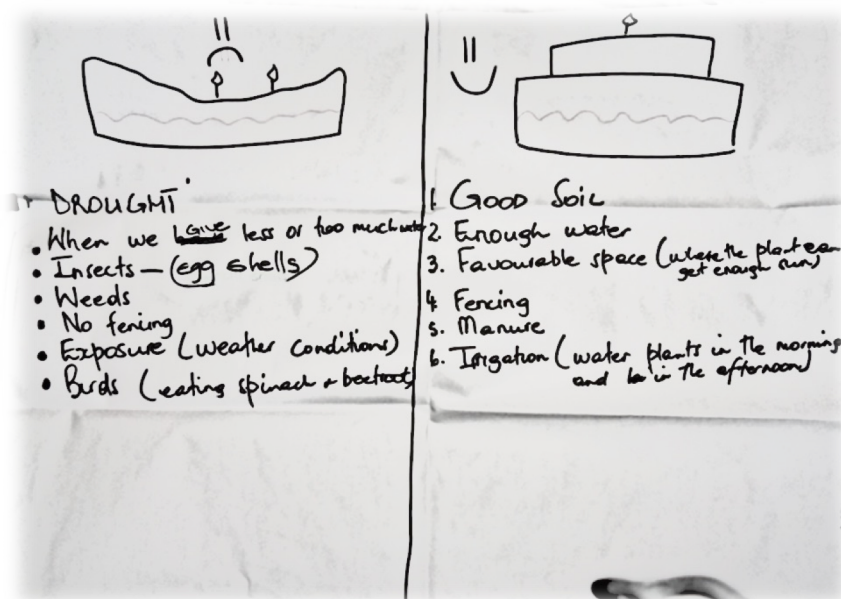 DROUGHT
• When we Give less or too much water
• Insects – (egg shells)
• Weeds
• No fencing
• Exposure (weather conditions)
• Birds (eating spinach + beetroot)
1. GOOD SOIL
2. Enough water
3. Favourable space (where the plant can
get enough sun)
4. Fencing
5. Manure
6. Irrigation (water plants in the morning
and in the afternoon)